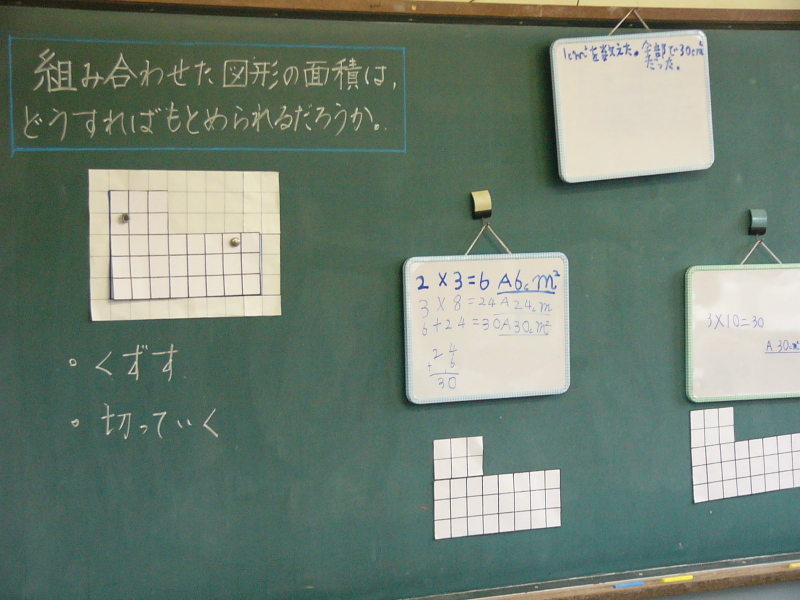 組み合わせた図形の面積は、
どうすればもとめられるだろうか。
・くずす
・切っていく
1cm²を数えた。全部で30cm²
だった。
2×3=6 A6cm²
3×8=24 A24cm
6+24=30 A30cm²
24
+ 6
30
3×10=30
A 30cm²